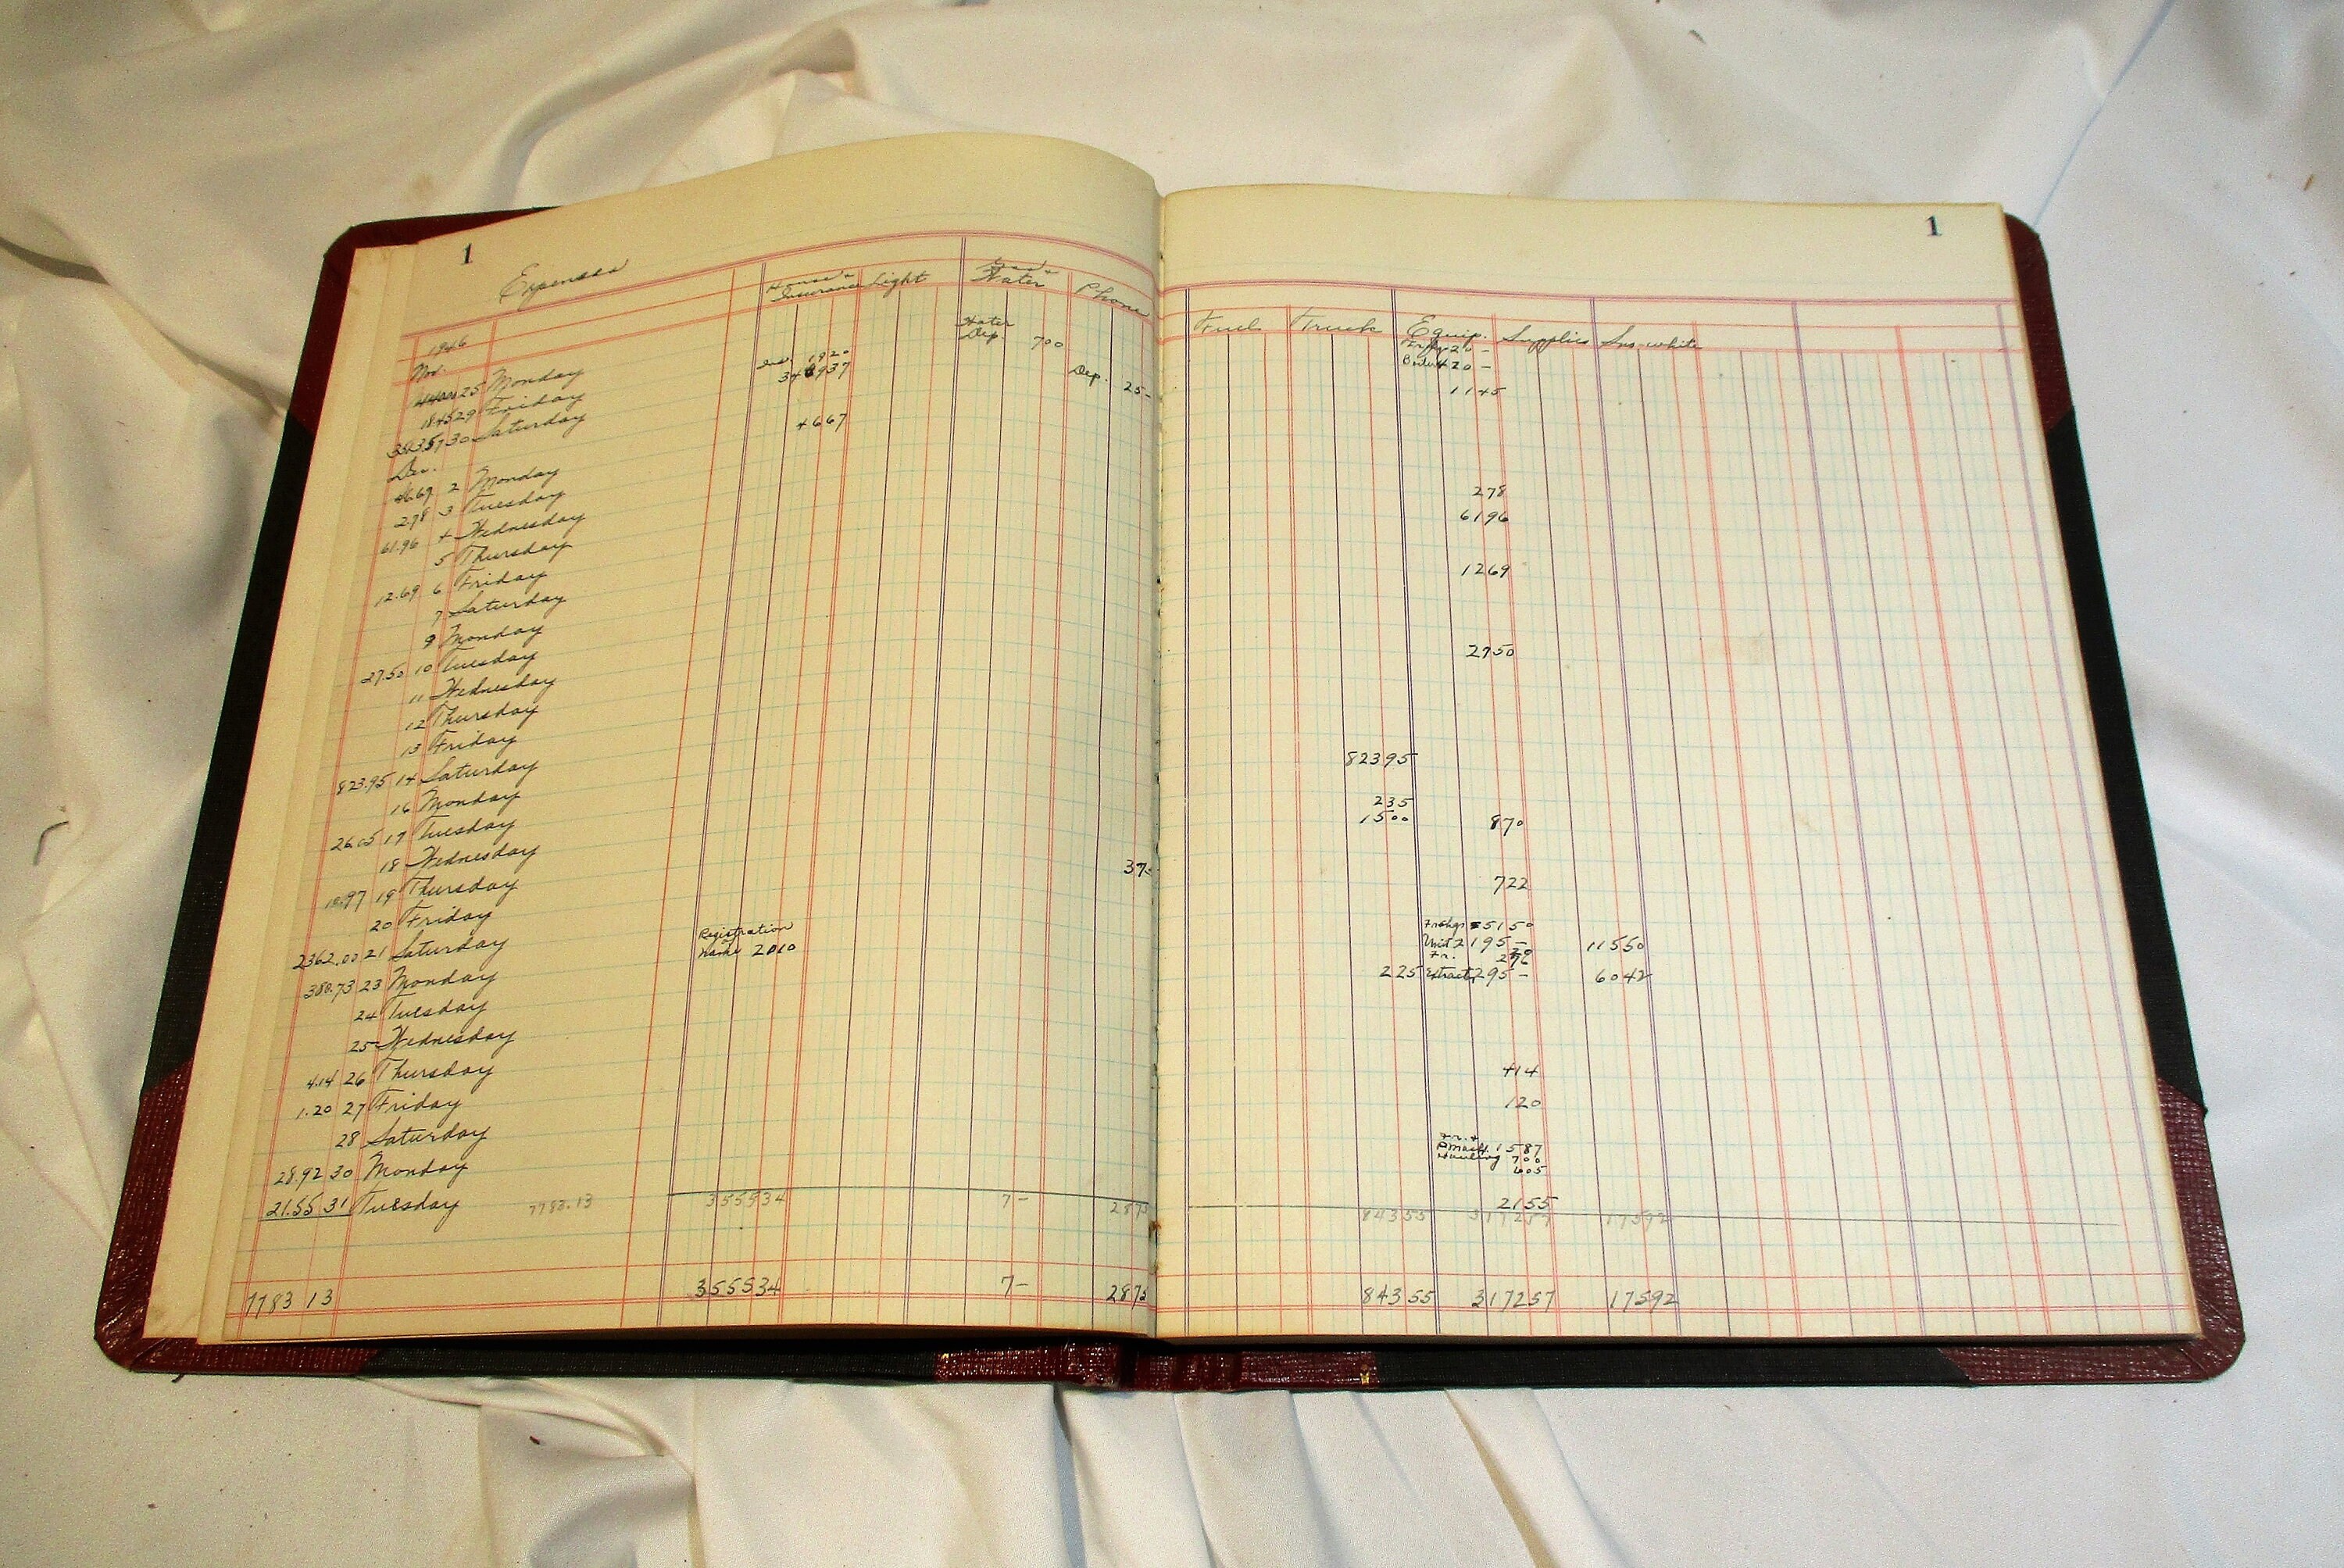 1
Expenses
House &
Insurance
Light
Gas &
Water
Phone
1946
Nov.
25 Monday
Water
Dep. 700
29 Friday
Ins. 1920
Dep. 25-
30 Saturday
Dec.
4667
2 Monday
2.78 3 Tuesday
61.96 4 Wednesday
5 Thursday
12.69 6 Friday
7 Saturday
9 Monday
27.50 10 Tuesday
11 Wednesday
12 Thursday
13 Friday
823.95 14 Saturday
16 Monday
26.05 17 Tuesday
18 Wednesday
19 Thursday
20 Friday
2362.00 21 Saturday
Registration
Name 2010
380.73 23 Monday
24 Tuesday
25 Wednesday
4.14 26 Thursday
1.20 27 Friday
28 Saturday
28.92 30 Monday
21.55 31 Tuesday 7783.13 355534 7- 2875
7783 13 355534 7- 2875
1
Fuel Truck Equip. Supplies Sno-white
1145
278
6196
1269
2750
82395
235
1500 870
722
5150
Unit 2195- 11550
Fr.
225 Extract 295- 6042
414
120
1587
Hauling 700
605
2155
84355 317257 17592
84355 317257 17592